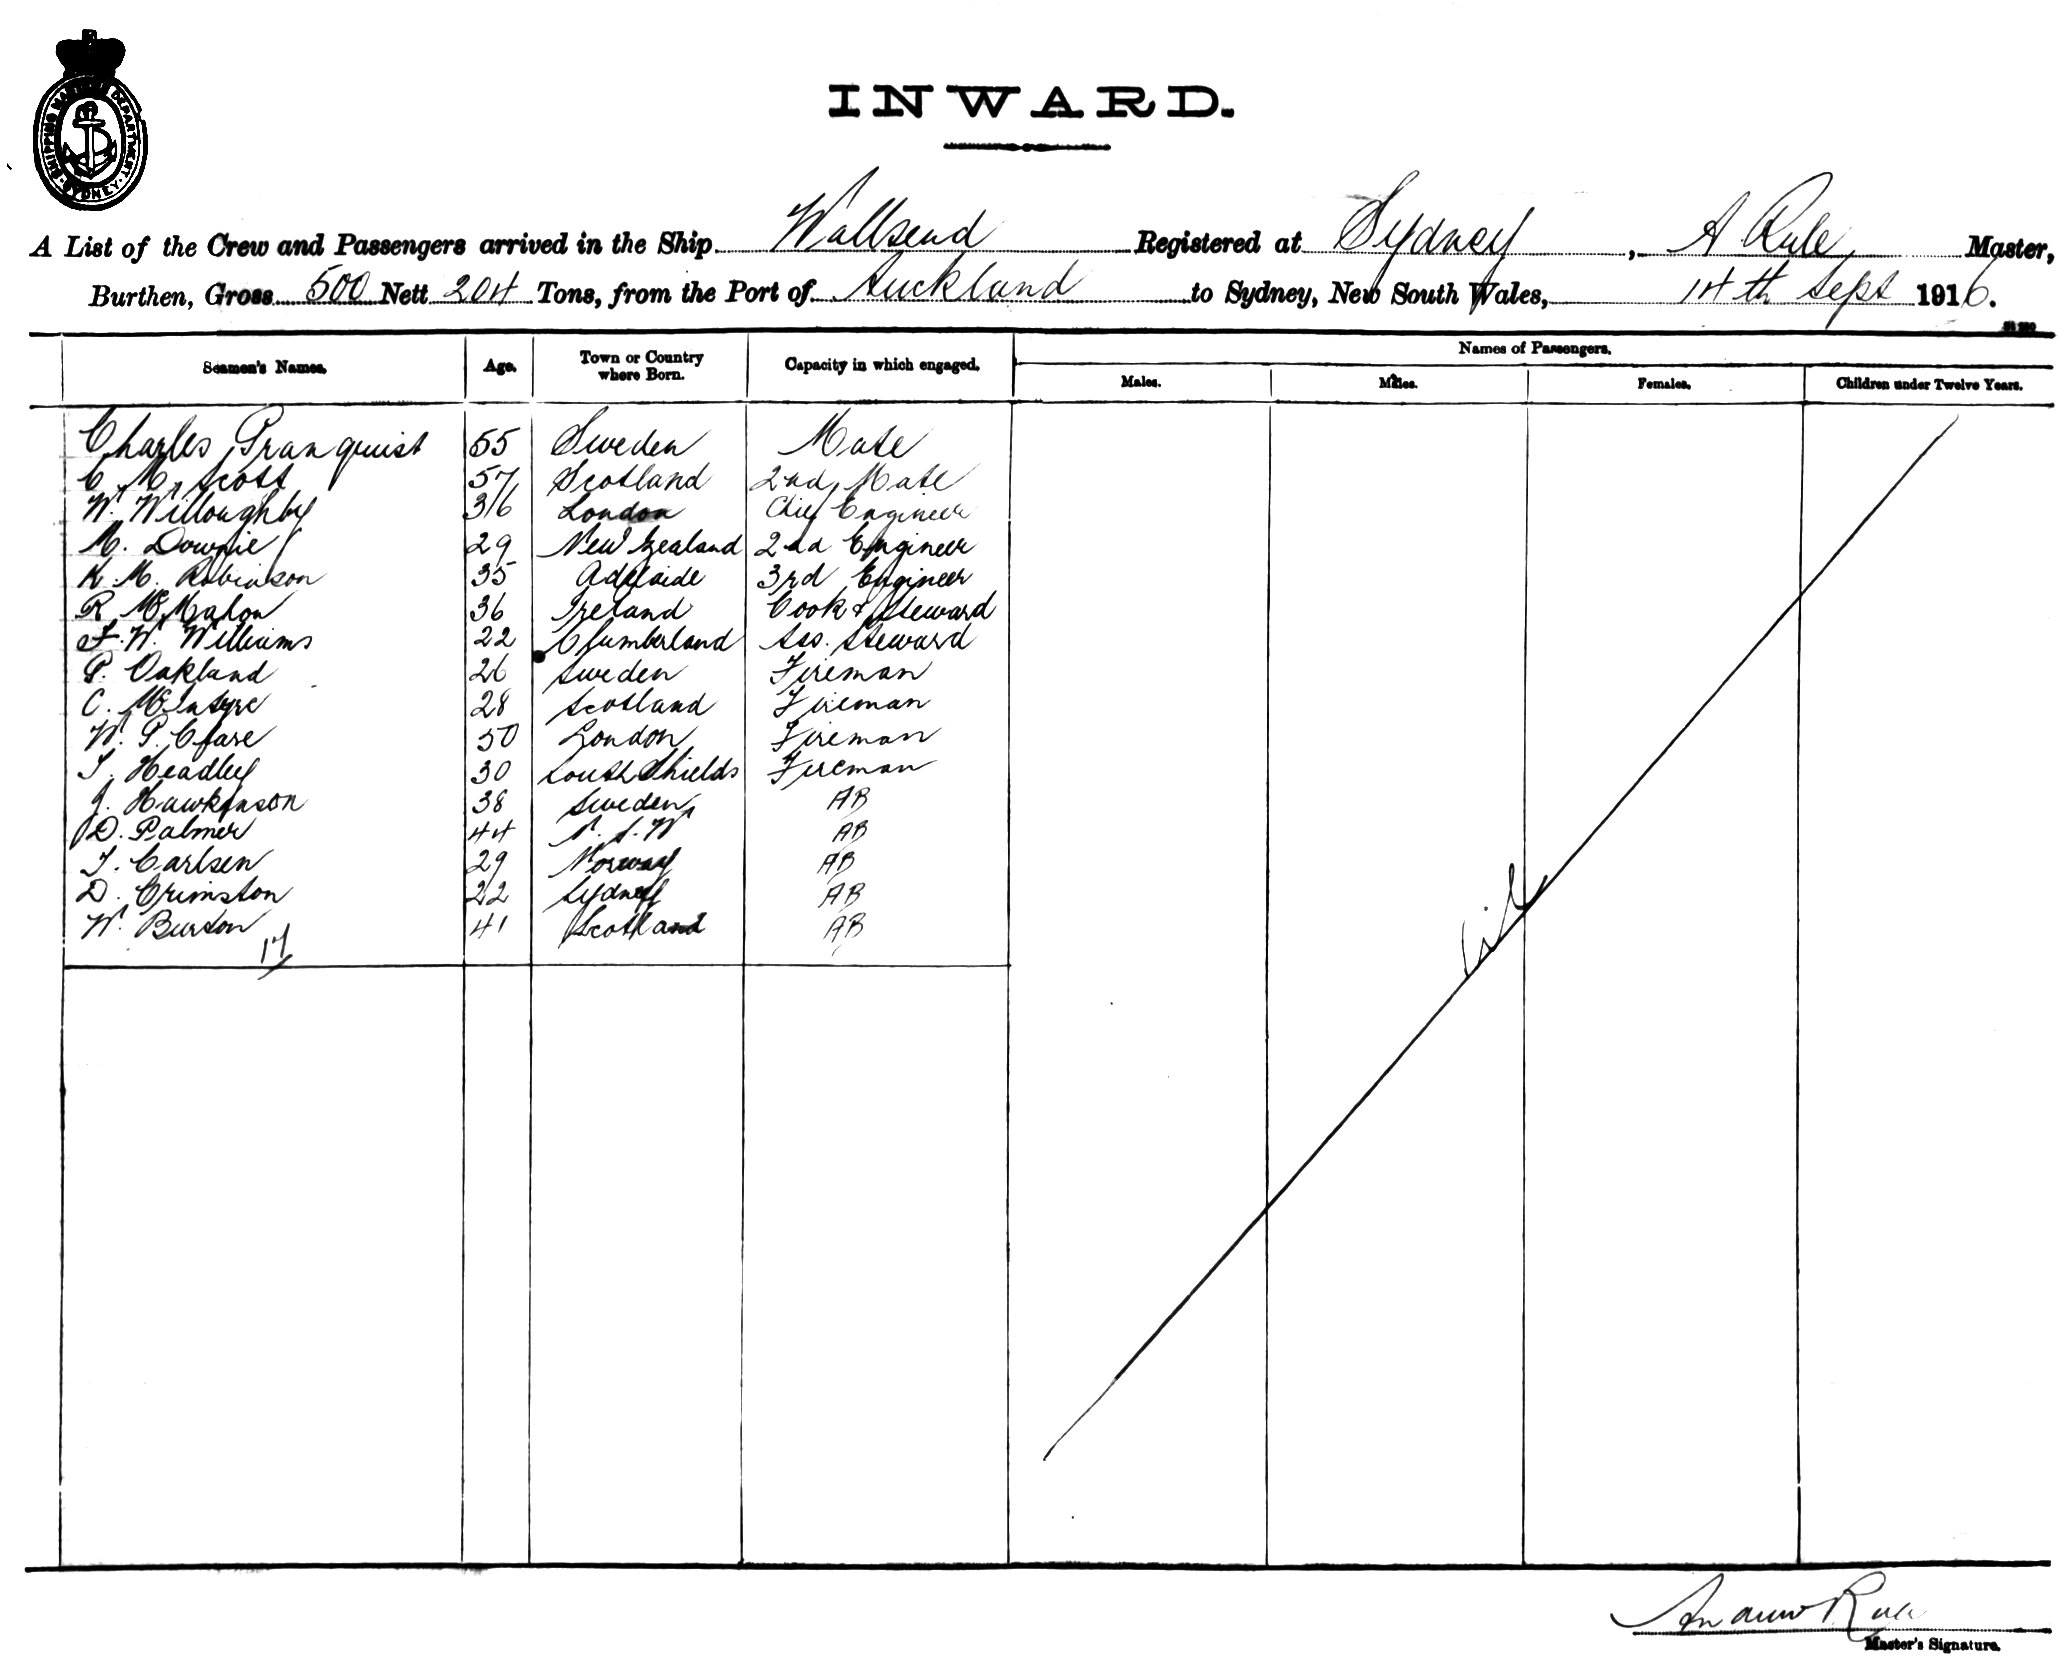 SHIPPING MASTER'S DEPARTMENT. SYDNEY.
INWARD.
A List of the Crew and Passengers arrived in the Ship Wallsend Registered at Sydney, A Rule Master,
Burthen, Gross 500 Nett 204 Tons, from the Port of Auckland to Sydney, New South Wales, 14th Sept 1916.
Seamen's Names. Age. Town or Country where Born. Capacity in which engaged. Names of Passengers.
Males. Males. Females. Children under Twelve Years.
Charles Granquist 55 Sweden Mate
C. M. Scott 57 Scotland 2nd Mate
W. Willoughby 36 London Chief Engineer
M. Downie 29 New Zealand 2nd Engineer
K. M. Robinson 35 Adelaide 3rd Engineer
R McMahon 36 Ireland Cook & Steward
F. W. Williams 22 Cumberland Ass. Steward
P. Oakland 26 Sweden Fireman
C. McIntyre 28 Scotland Fireman
W. P. Chase 50 London Fireman
T. Headley 30 South Shields Fireman
J. Hawkinson 38 Sweden AB
D. Palmer 44 N.S.W AB
T. Carlsen 29 Norway AB
D. Crimston 22 Sydney AB
W. Burton 41 Scotland AB
17
Nil
Andrew Rule
Master's Signature.